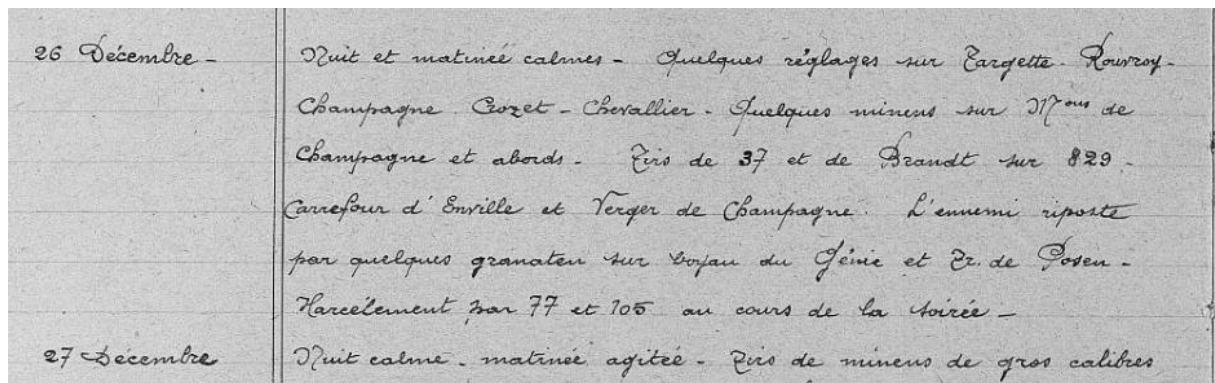 26 Décembre - Nuit et matinée calmes - Quelques réglages sur Targette - Rouvroy -
Champagne Crozet - Chevallier - Quelques minens sur Mons de
Champagne et abords - Tirs de 37 et de Brandt sur 829 -
Carrefour d'Enville et Verger de Champagne. L'ennemi riposte
par quelques granaten sur boyau du Génie et Tr. de Posen -
Harcèlement par 77 et 105 au cours de la soirée -
27 Décembre Nuit calme - matinée agitée - Tirs de minens de gros calibres